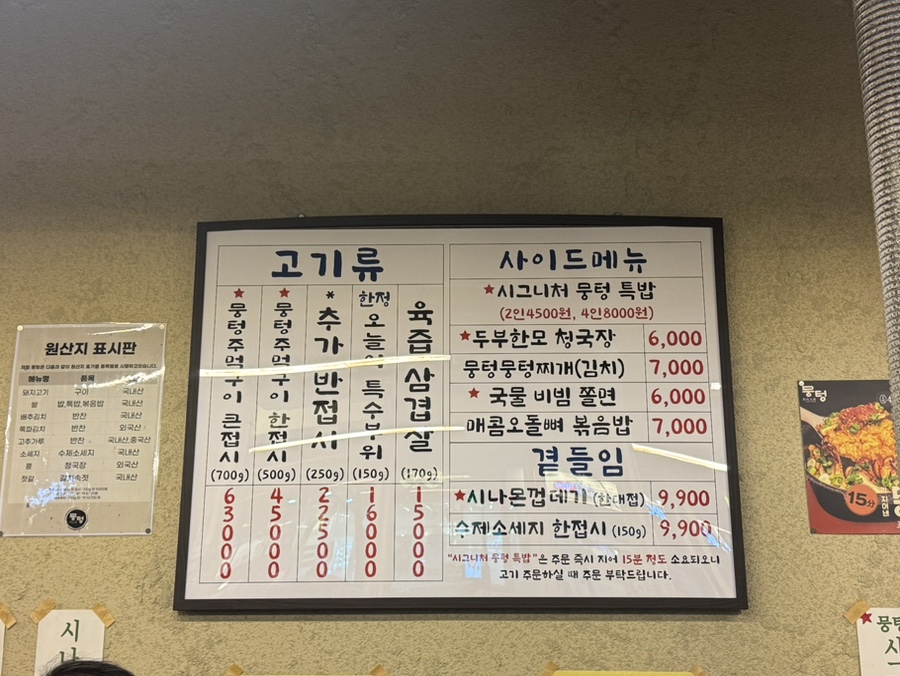 고기류
★뭉텅주먹구이 큰접시 (700g) 63000
★뭉텅주먹구이 한접시 (500g) 45000
*추가반접시 (250g) 22500
한정 오늘의 특수부위 (150g) 16000
육즙삼겹살 (170g) 15000
사이드메뉴
★시그니처 뭉텅 특밥
(2인4500원, 4인8000원)
★두부한모 청국장 6,000
뭉텅뭉텅찌개(김치) 7,000
★국물 비빔 쫄면 6,000
매콤오돌뼈 볶음밥 7,000
곁들임
★시나몬껍데기 (한대접) 9,900
수제소세지 한접시 (150g) 9,900
"시그니처 뭉텅 특밥"은 주문 즉시 지어 15분 정도 소요되오니
고기 주문하실 때 주문 부탁드립니다.
원산지 표시판
메뉴명 품목 원산지
돼지고기 구이 국내산
쌀 밥,특밥,볶음밥 국내산
배추김치 반찬 국내산
쪽파김치 반찬 외국산
고추가루 반찬 국내산,중국산
소세지 수제소세지 국내산
콩 청국장 외국산
젓갈 갈치속젓 국내산
뭉텅
시
나
뭉텅
15分
★뭉텅